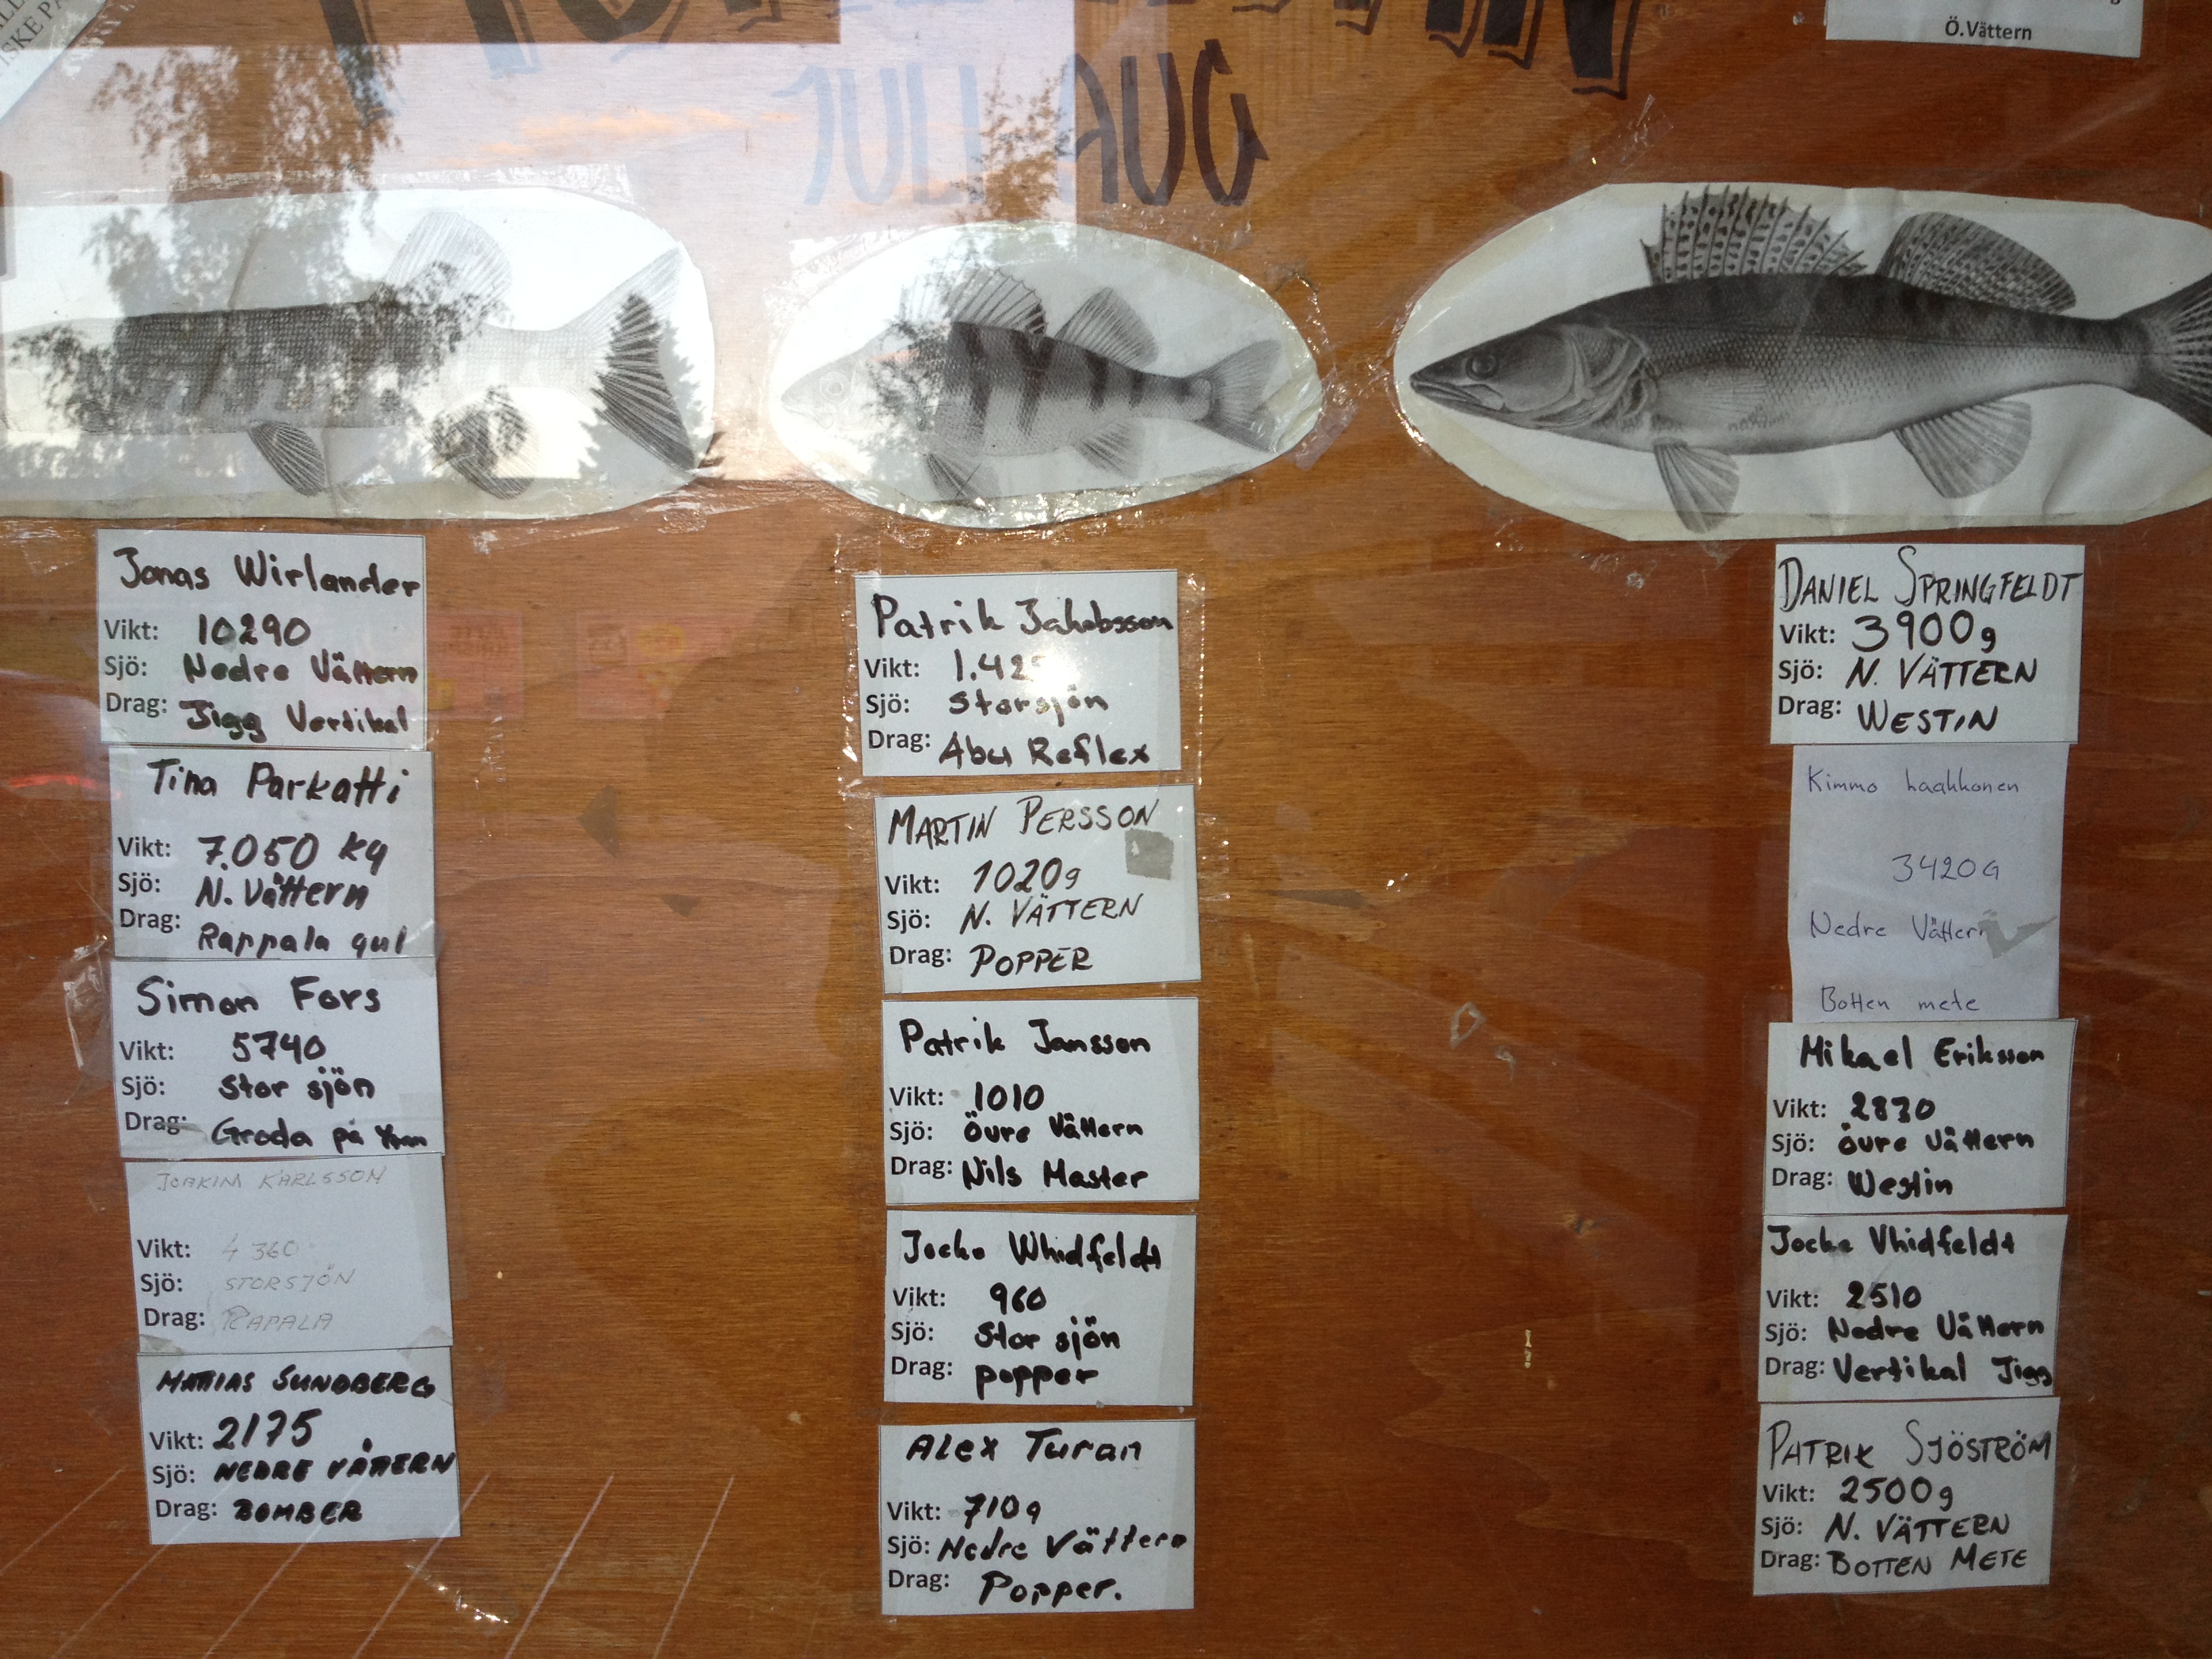 JULI AUG
Ö.Vättern
Jonas Wirlander
Vikt: 10290
Sjö: Nedre Vättern
Drag: Jigg Vertikal
Tina Parkatti
Vikt: 7.050 kg
Sjö: N. Vättern
Drag: Rappala gul
Simon Fors
Vikt: 5740
Sjö: Stor sjön
Drag: Groda på
JOAKIM KARLSSON
Vikt: 4 360
Sjö: STORSJÖN
Drag: RAPALA
MATTIAS SUNDBERG
Vikt: 2175
Sjö: NEDRE VÄTTERN
Drag: BOMBER
Patrik Jakobsson
Vikt:
Sjö: Storsjön
Drag: Abu Reflex
MARTIN PERSSON
Vikt: 1020g
Sjö: N. VÄTTERN
Drag: POPPER
Patrik Jansson
Vikt: 1010
Sjö: Övre Vättern
Drag: Nils Master
Jocke Whidfeldt
Vikt: 960
Sjö: Stor sjön
Drag: popper
Alex Turan
Vikt: 710g
Sjö: Nedre Vättern
Drag: Popper.
DANIEL SPRINGFELDT
Vikt: 3900g
Sjö: N. VÄTTERN
Drag: WESTIN
Kimmo haahkonen
3420G
Nedre Vättern
Botten mete
Mikael Eriksson
Vikt: 2830
Sjö: övre Vättern
Drag: Westin
Jocke Vhidfeldt
Vikt: 2510
Sjö: Nedre Vättern
Drag: Vertikal Jigg
PATRIK SJÖSTRÖM
Vikt: 2500g
Sjö: N. VÄTTERN
Drag: BOTTEN METE